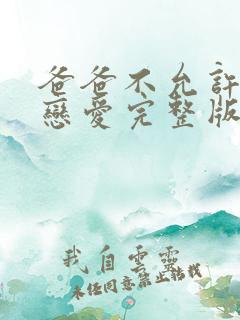 爸爸不允許
戀愛完整版
我自雲靈
未经同意禁止转载